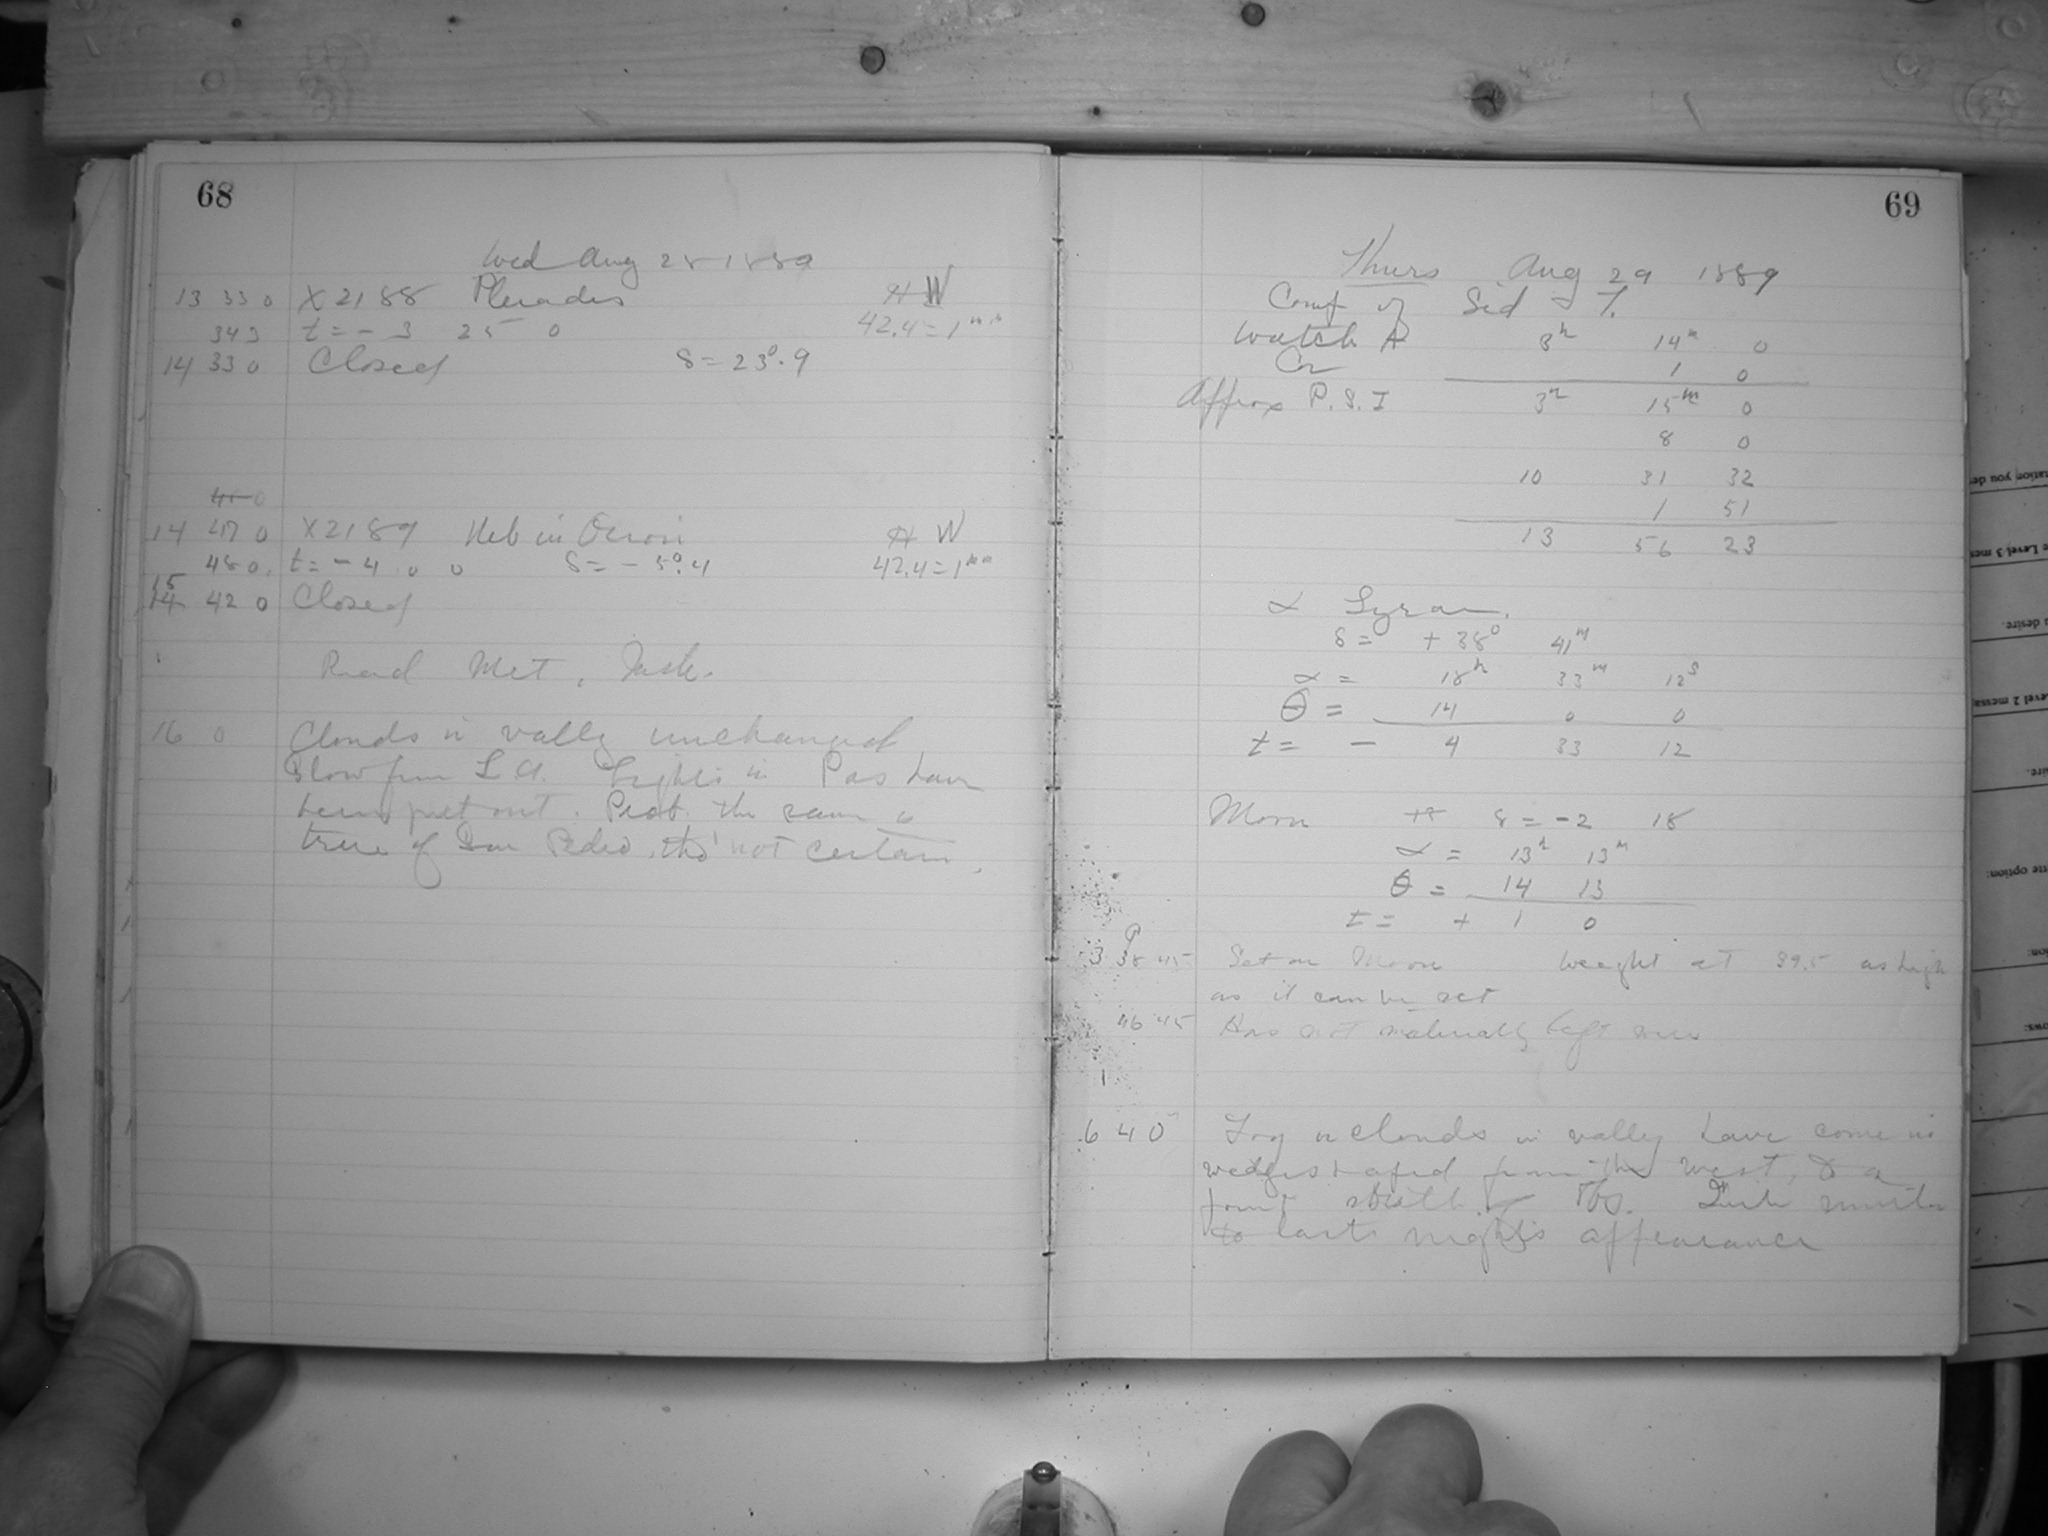 68
Wed Aug 28 1889
13 33 0 X2188 Pleiades H W
34 3 t = - 3 25 0 42.4 = 1mm
14 33 0 Closed δ = 23°.9
14 47 0 X2189 Neb in Orion H W
48 0. t = - 4 0 0 δ = - 5°.4 42.4 = 1mm
15
14 42 0 Closed
Read Met.
16 0 Clouds in vally unchanged
Slow from L A. Lights in Pas have
been put out. Prob. the same is
true of San Pedro, tho' not certain.
69
Thurs Aug 29 1889
Comp of Sid T.
Watch A 3h 14m 0
Cor 1 0
Approx P.S.T 3h 15m 0
8 0
10 31 32
1 51
13 56 23
α Lyrae.
δ = + 38° 41m
α = 18h 33m 12s
θ = 14 0 0
t = - 4 33 12
Moon δ = -2 18
α = 13h 13m
θ = 14 13
t = + 1 0
3 38 45 Set on Moon Weight at 39.5 as high
as it can be set
46 45 Has not materially
6 40 Fog or clouds in vally have come in
wedge shaped from the west, to a
point south of Obs. similar
to last night's appearance